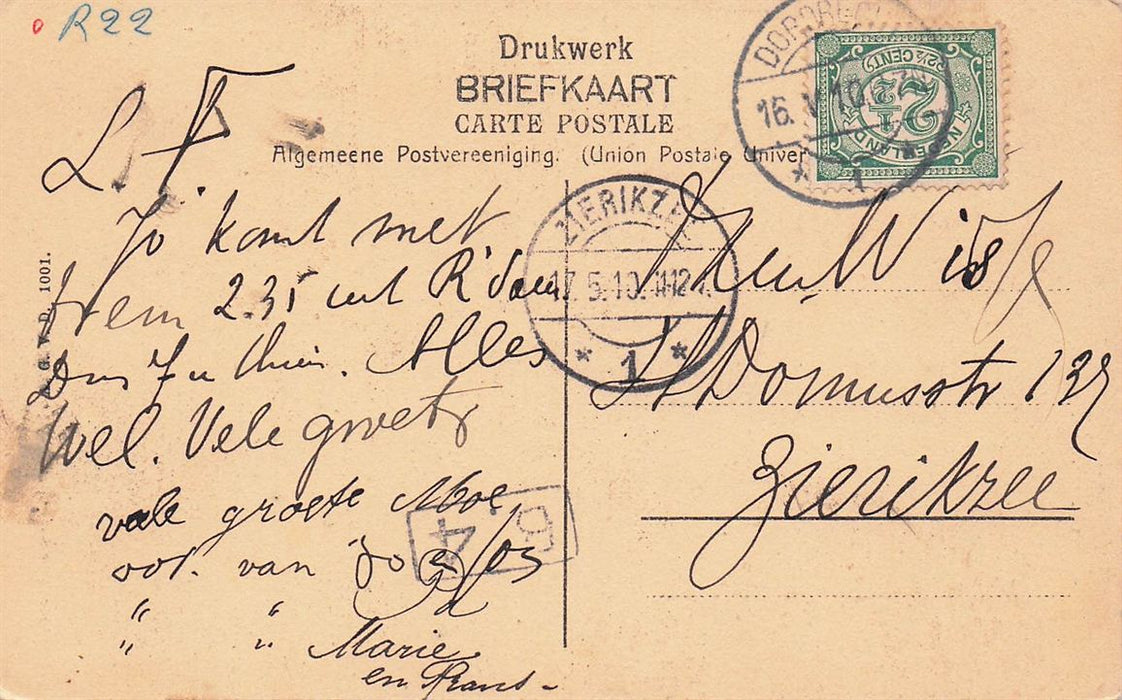 R22
Drukwerk
BRIEFKAART
CARTE POSTALE
Algemeene Postvereeniging. (Union Postale Univer
DORDRECHT
16. V 10.
1
NEDERLAND
2½
2½ CENT
ZIERIKZEE
17.5.10. 11-12
* 1 *
1001.
L.
Jo komt met
trem 2.35 uit R'dam
Alles
Wel. Vele groeten
vele groete Moe
ook van Jo en Jos
" "
" " Marie
en Frans
W
St Domusstr 137
Zierikzee
4